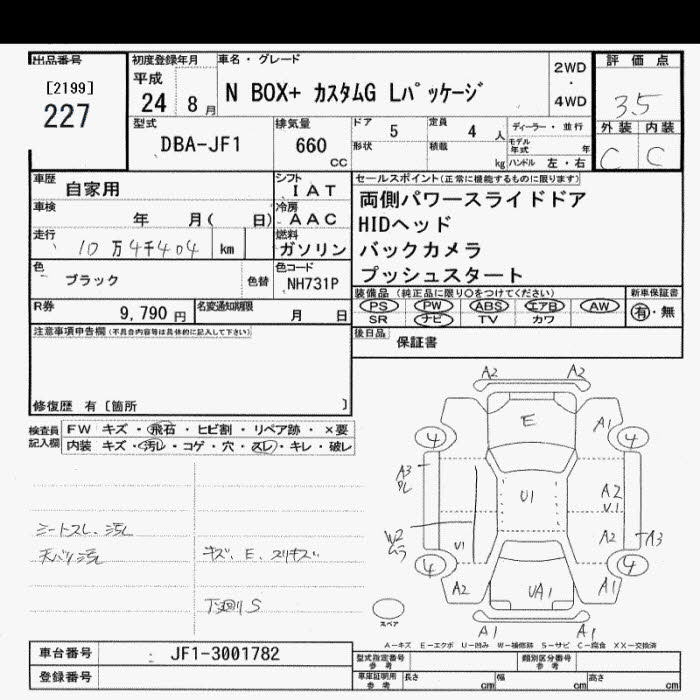 出品番号 初度登録年月 車名・グレード 評価点
[2199] 平成 N BOX+ カスタムG Lパッケージ 2WD
227 24 8 月 4WD 3.5
型式 排気量 ドア 5 定員 4 人 ディーラー・並行 外装 内装
DBA-JF1 660 cc 形状 積載 kg モデル年式 年 ハンドル 左・右 C C
車歴 自家用 シフト IAT セールスポイント(正常に機能するものに限ります)
車検 年 月( 日) 冷房 AAC 両側パワースライドドア
走行 10万4千404 km 燃料 ガソリン HIDヘッド
色 ブラック 色替 色コード NH731P バックカメラ
プッシュスタート
R券 9,790 円 名変通知期限 月 日 装備品(純正品に限り○をつけてください) 新車保証書
PS PW ABS エアB AW 有・無
SR ナビ TV カワ
注意事項申告欄(不具合内容等は具体的に記入して下さい) 後日品 保証書
修復歴 有〔箇所 〕
検査員記入欄 FW キズ・飛石・ヒビ割・リペア跡・×要
内装 キズ・汚レ・コゲ・穴・スレ・キレ・破レ
A2 A2
E A1
4 4
A3 U1 A2
U1
W2 A2 A3
ムラ U1
4 4
A2 UA1 A1
A1 A1
シートスレ、汚レ
天バリ汚レ キズ、E、スリキズ
下廻りS
スペア
A-キズ E-エクボ U-凹み W-補修跡 S-サビ C-腐食 XX-交換済
車台番号 JF1-3001782 型式指定番号 参考 類別区分番号 参考
登録番号 車庫証明用 参考 長さ cm 幅 cm 高さ cm